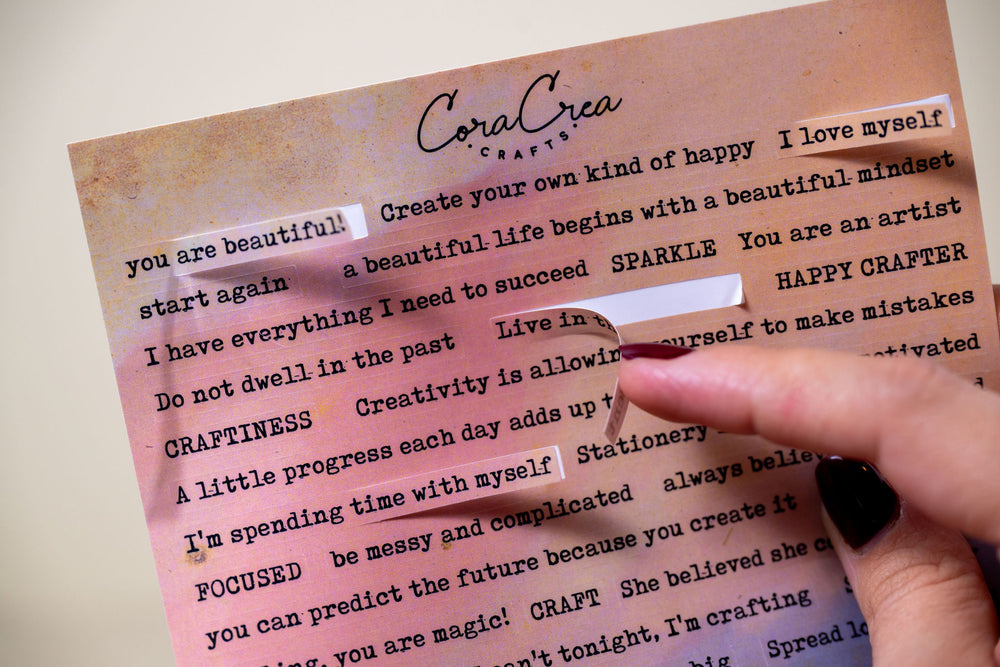 CoraCrea
CRAFTS
you are beautiful! Create your own kind of happy I love myself
start again a beautiful life begins with a beautiful mindset
I have everything I need to succeed SPARKLE You are an artist
Do not dwell in the past Live in HAPPY CRAFTER
CRAFTINESS Creativity is allowing yourself to make mistakes
A little progress each day adds up
I'm spending time with myself Stationery
FOCUSED be messy and complicated always
you can predict the future because you create it
you are magic! CRAFT She believed she
tonight, I'm crafting
big Spread